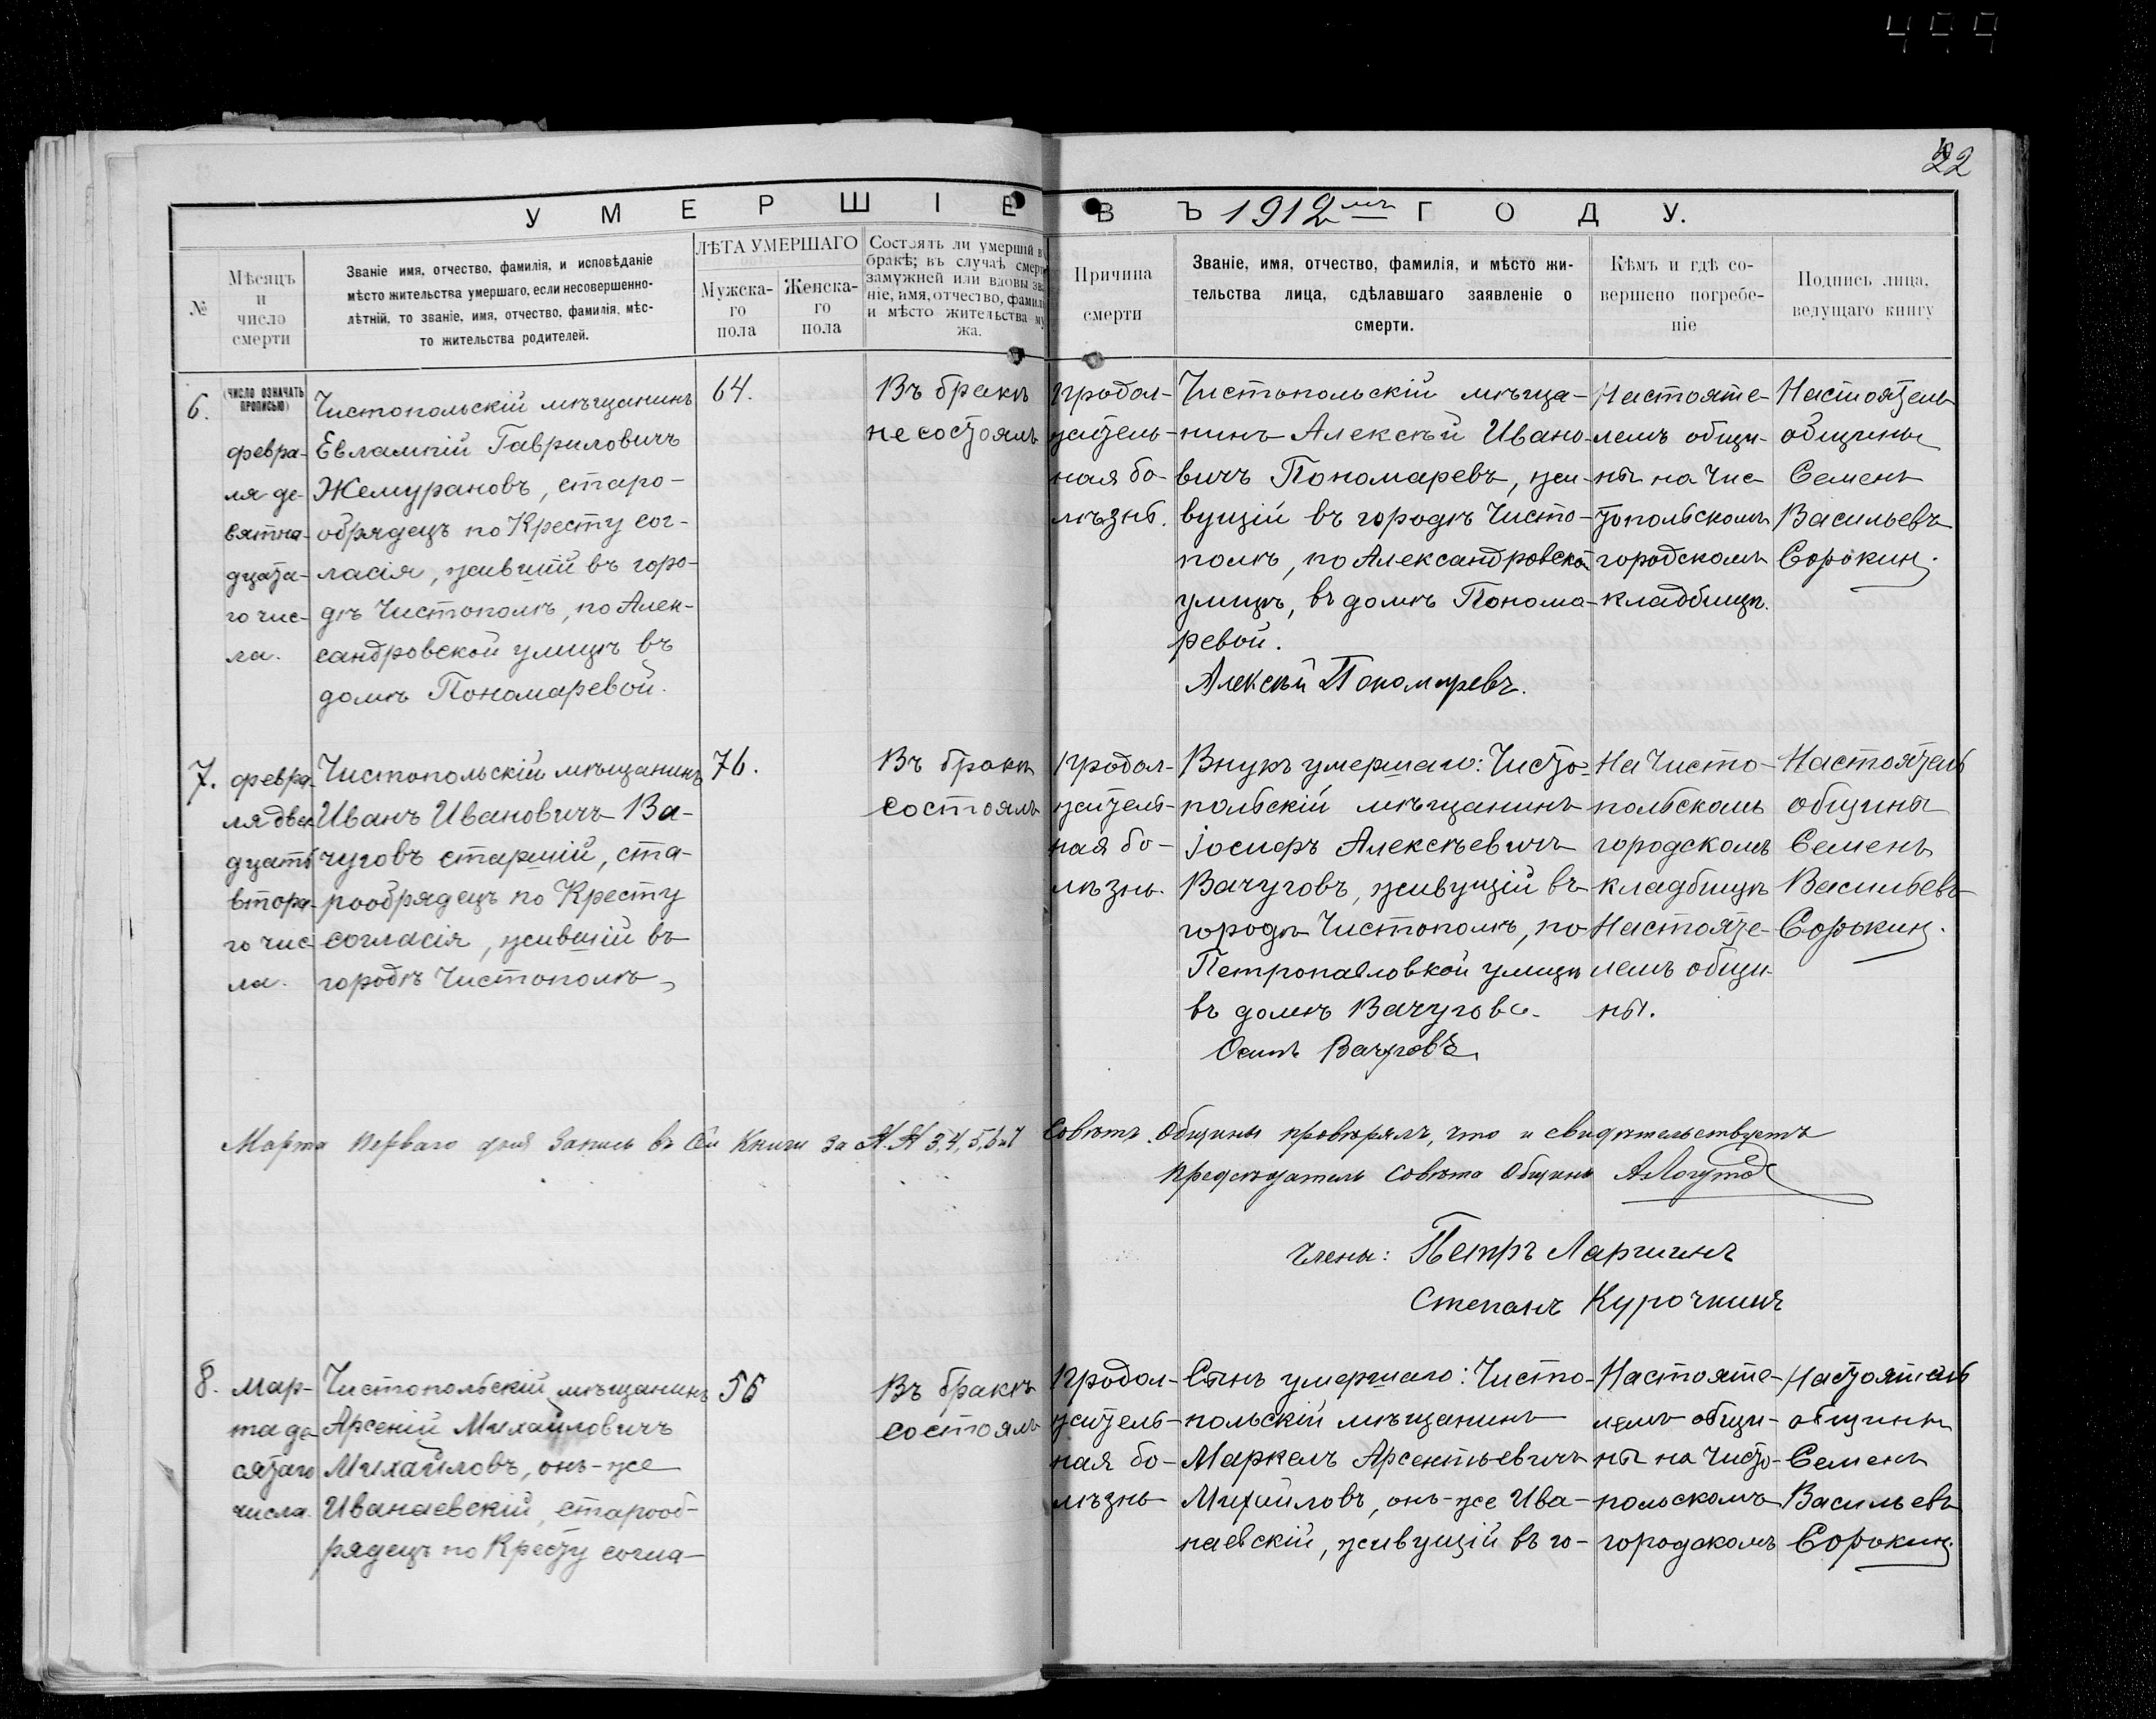 499
22
УМЕРШІЕ ВЪ 1912мъ ГОДУ.
№
Мѣсяцъ
и
число
смерти
Званіе имя, отчество, фамилія, и исповѣданіе
мѣсто жительства умершаго, если несовершенно-
лѣтній, то званіе, имя, отчество, фамилія, мѣс-
то жительства родителей.
ЛѢТА УМЕРШАГО
Мужска-
го
пола
Женска-
го
пола
Состоялъ ли умершій въ
бракѣ; въ случаѣ смерти
замужней или вдовы зва
ніе, имя, отчество, фамилі
и мѣсто жительства му
жа.
Причина
смерти
Званіе, имя, отчество, фамилія, и мѣсто жи-
тельства лица, сдѣлавшаго заявленіе о
смерти.
Кѣмъ и гдѣ со-
вершено погребе-
ніе
Подпись лица,
ведущаго книгу
6.
(ЧИСЛО ОЗНАЧАТЬ
ПРОПИСЬЮ)
февра-
ля де-
вятна-
дцата-
го чис-
ла.
Чистопольскій мѣщанинъ
Евлампій Гавриловичъ
Жемурановъ, старо-
обрядецъ по Кресту сог-
ласія, жившій въ горо-
дѣ Чистополѣ, по Алек-
сандровской улицѣ въ
домѣ Пономаревой.
64.
Въ бракѣ
не состоялъ
Продол-
житель-
ная бо-
лѣзнь.
Чистопольскій мѣща-
нинъ Алексѣй Ивано-
вичъ Пономаревъ, жи-
вущій въ городѣ Чисто-
полѣ, по Александровской
улицѣ, въ домѣ Понома-
ревой.
Алексѣй Пономаревъ.
Настояте-
лемъ общи-
ны на Чис-
топольскомъ
городскомъ
кладбищѣ.
Настоятель
общины
Семенъ
Васильевъ
Сорокинъ.
7.
февра-
ля два-
дцать
втора-
го чис-
ла.
Чистопольскій мѣщанинъ
Иванъ Ивановичъ Ва-
чуговъ старшій, ста-
рообрядецъ по Кресту
согласія, жившій въ
городѣ Чистополѣ,
76.
Въ бракѣ
состоялъ
Продол-
житель-
ная бо-
лѣзнь.
Внукъ умершаго: Чисто-
польскій мѣщанинъ
Іосифъ Алексѣевичъ
Вачуговъ, живущій въ
городѣ Чистополѣ, по
Петропавловкой улицѣ
въ домѣ Вачугова.
Осипъ Вачуговъ.
На Чисто-
польскомъ
городскомъ
кладбищѣ
Настояте-
лемъ общи-
ны.
Настоятель
общины
Семенъ
Васильевъ
Сорокинъ.
Марта перваго дня запись въ сей книги за №.№ 3, 4, 5, 6 и 7 Совѣтъ Общины провѣрялъ, что и свидѣтельствуетъ
Предсѣдатель Совѣта Общины
Члены: Петръ Ларшинъ
Степанъ Курочкинъ
8.
мар-
та де-
сятаго
числа.
Чистопольскій мѣщанинъ
Арсеній Михайловичъ
Михайловъ, онъ-же
Иванаевскій, старооб-
рядецъ по Кресту согла-
56
Въ бракѣ
состоялъ
Продол-
житель-
ная бо-
лѣзнь
Сынъ умершаго: Чисто-
польскій мѣщанинъ
Маркелъ Арсентьевичъ
Михайловъ, онъ-же Ива-
наевскій, живущій въ го-
Настояте-
лемъ общи-
ны на Чисто-
польскомъ
городскомъ
Настоятель
общины
Семенъ
Васильевъ
Сорокинъ.